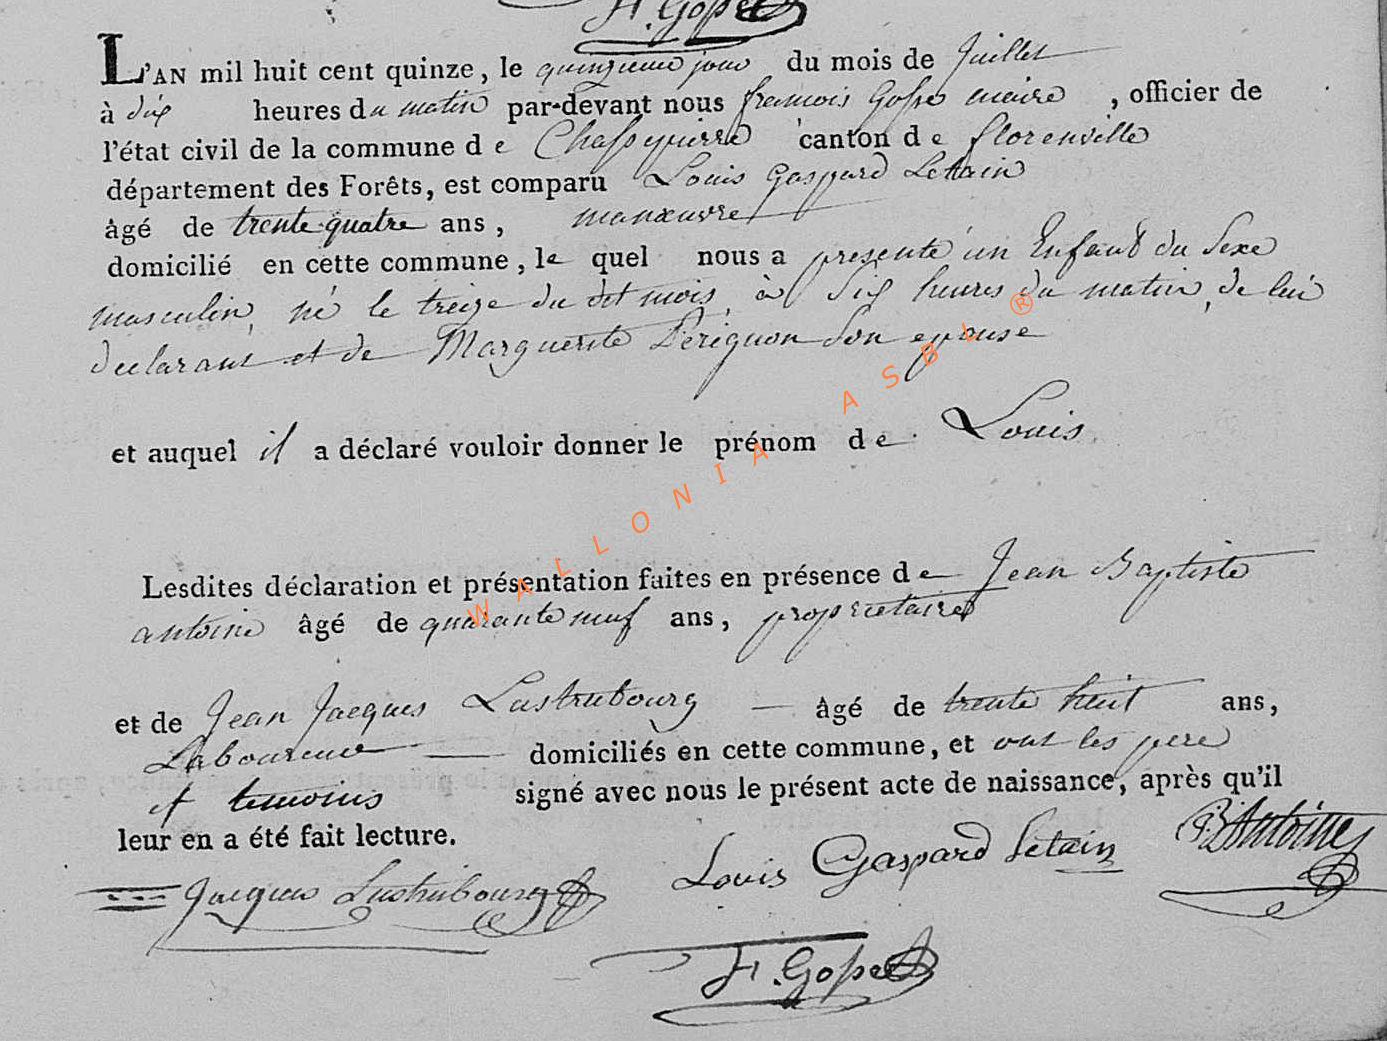 F. Gosse
L'AN mil huit cent quinze, le quinzieme jour du mois de Juillet
à dix heures du matin par-devant nous francois Gosse maire, officier de
l'état civil de la commune de Chassepierre canton de florenville
département des Forêts, est comparu Louis Gaspard Letain
âgé de trente quatre ans, manœuvre
domicilié en cette commune, le quel nous a presenté un Enfant du Sexe
masculin, né le treize du dit mois, à six heures du matin, de lui
declarant et de Marguerite Perignon Son epouse
et auquel il a déclaré vouloir donner le prénom de Louis
Lesdites déclaration et présentation faites en présence de Jean Baptiste
antoine âgé de quarante neuf ans, proprietaire
et de Jean Jacques Lustrubourg âgé de trente huit ans,
Laboureur domiciliés en cette commune, et ont les pere
et temoins signé avec nous le présent acte de naissance, après qu'il
leur en a été fait lecture.
Jacques Lustrubourg Louis Gaspard Letain JB Antoine
F. Gosse
WALLONIA ASBL ®